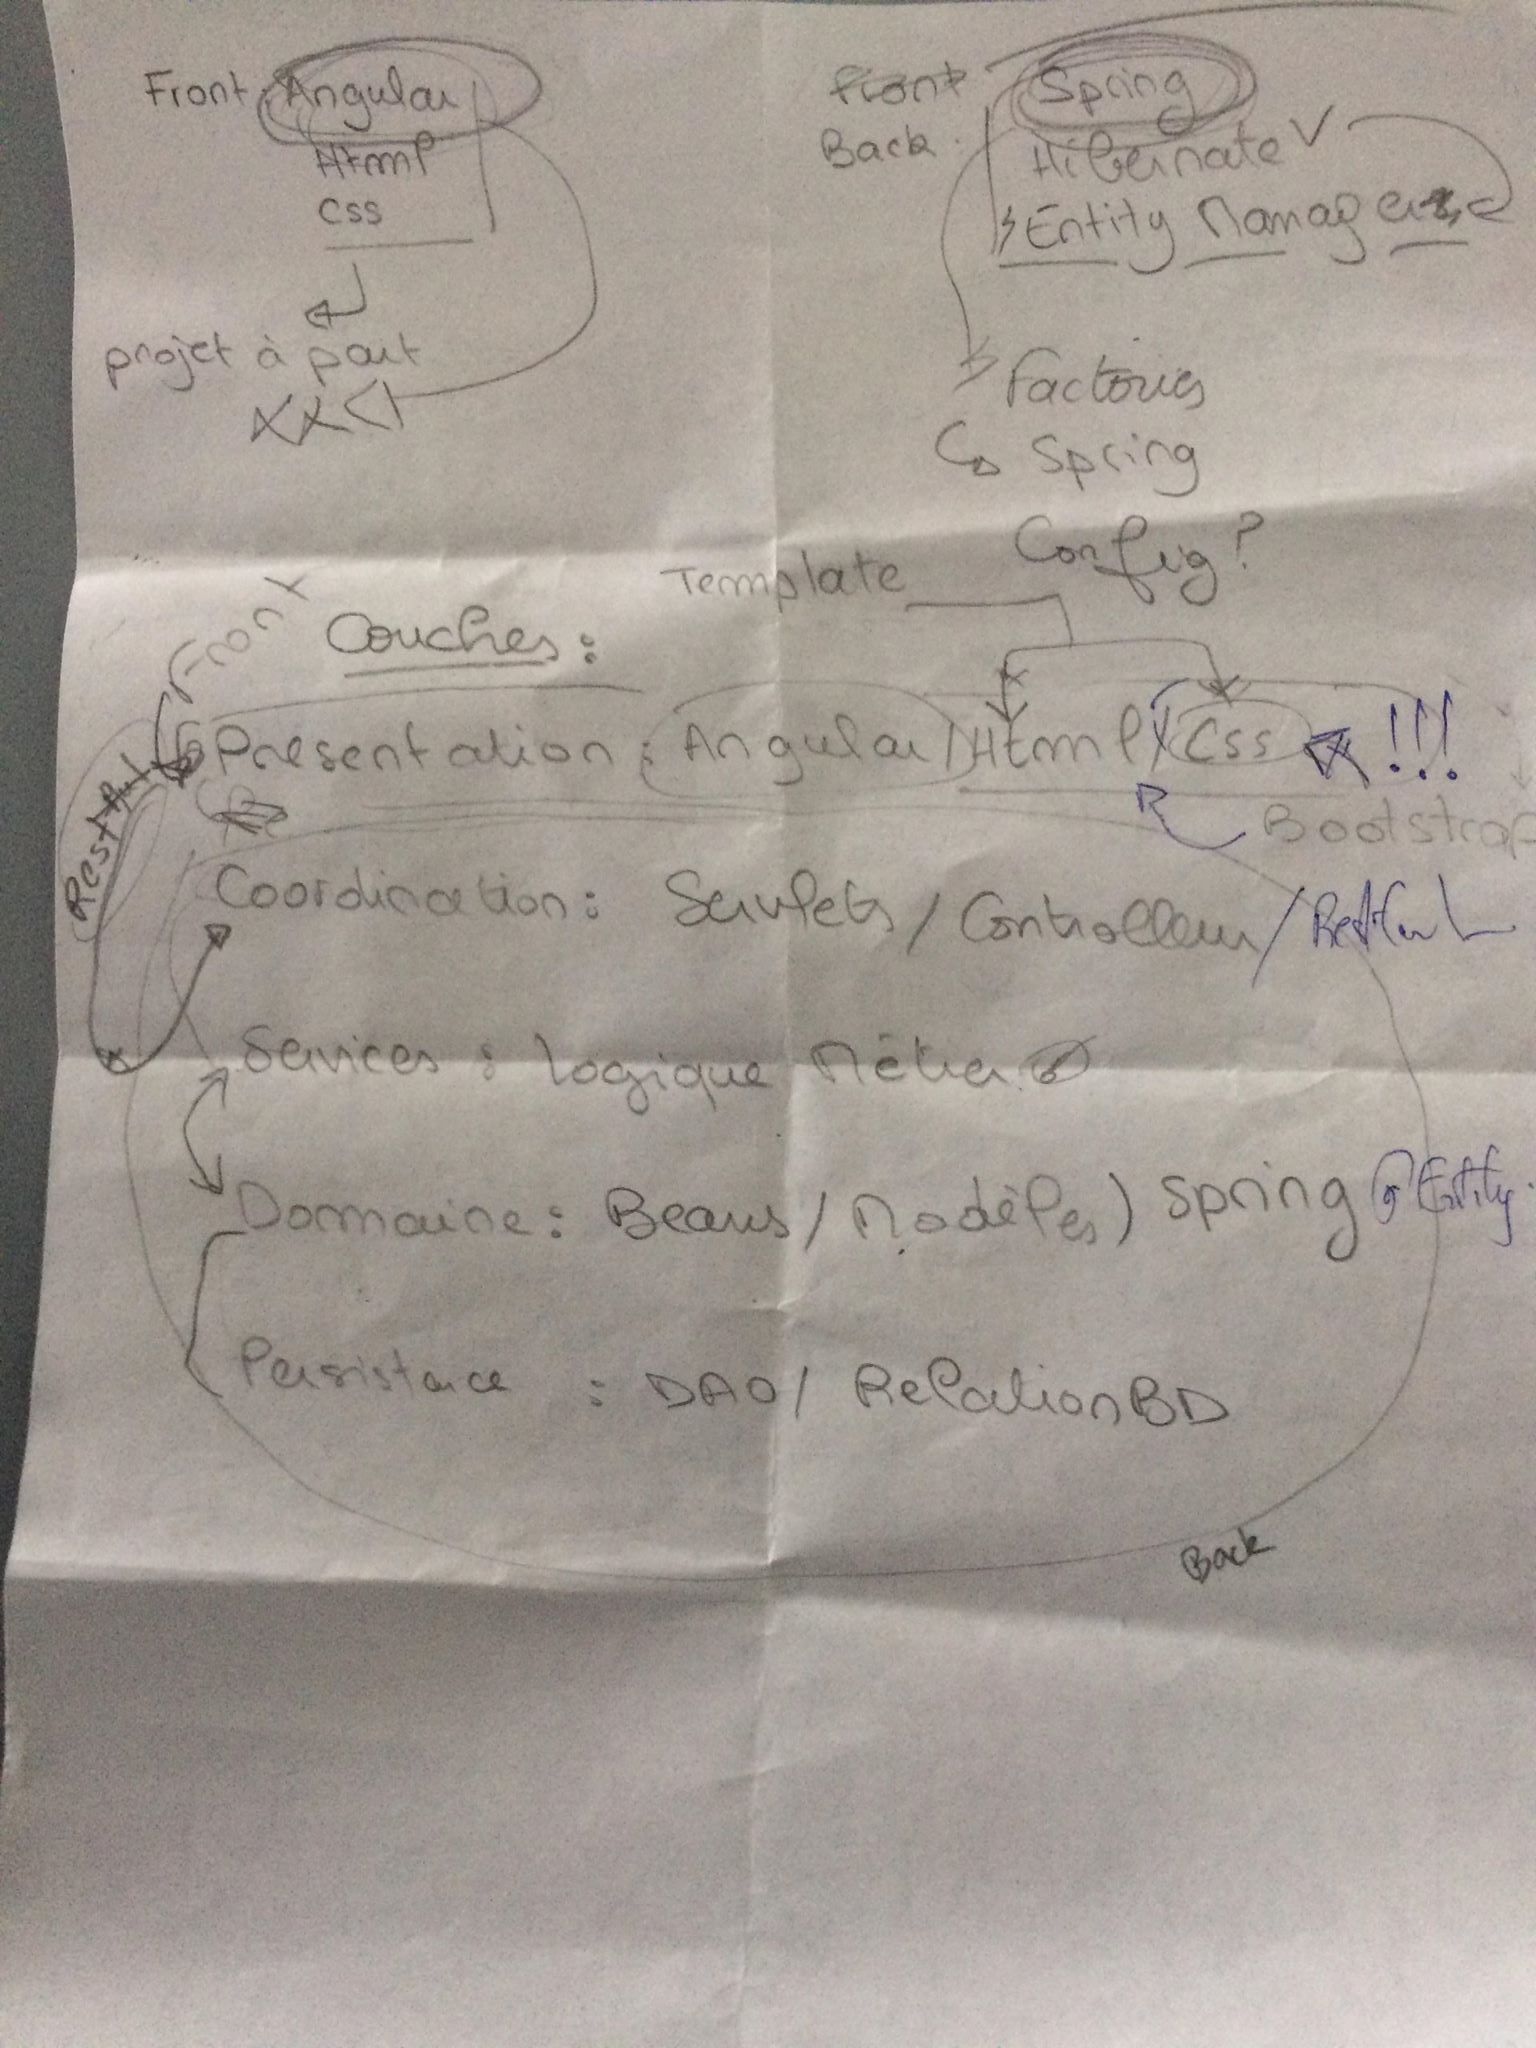 Front: Angular
Html
Css
projet à part
Front Spring
Back: Hibernate
Entity Manager
Factories
Spring
Config?
Template
Front
Couches:
Présentation: Angular/Html/Css !!!
Bootstrap
Restful
Coordination: Servlets/Controlleur/Restful
Services: Logique Métier
Domaine: Beans/Modèles) Spring @Entity.
Persistance: DAO/RelationBD
Back